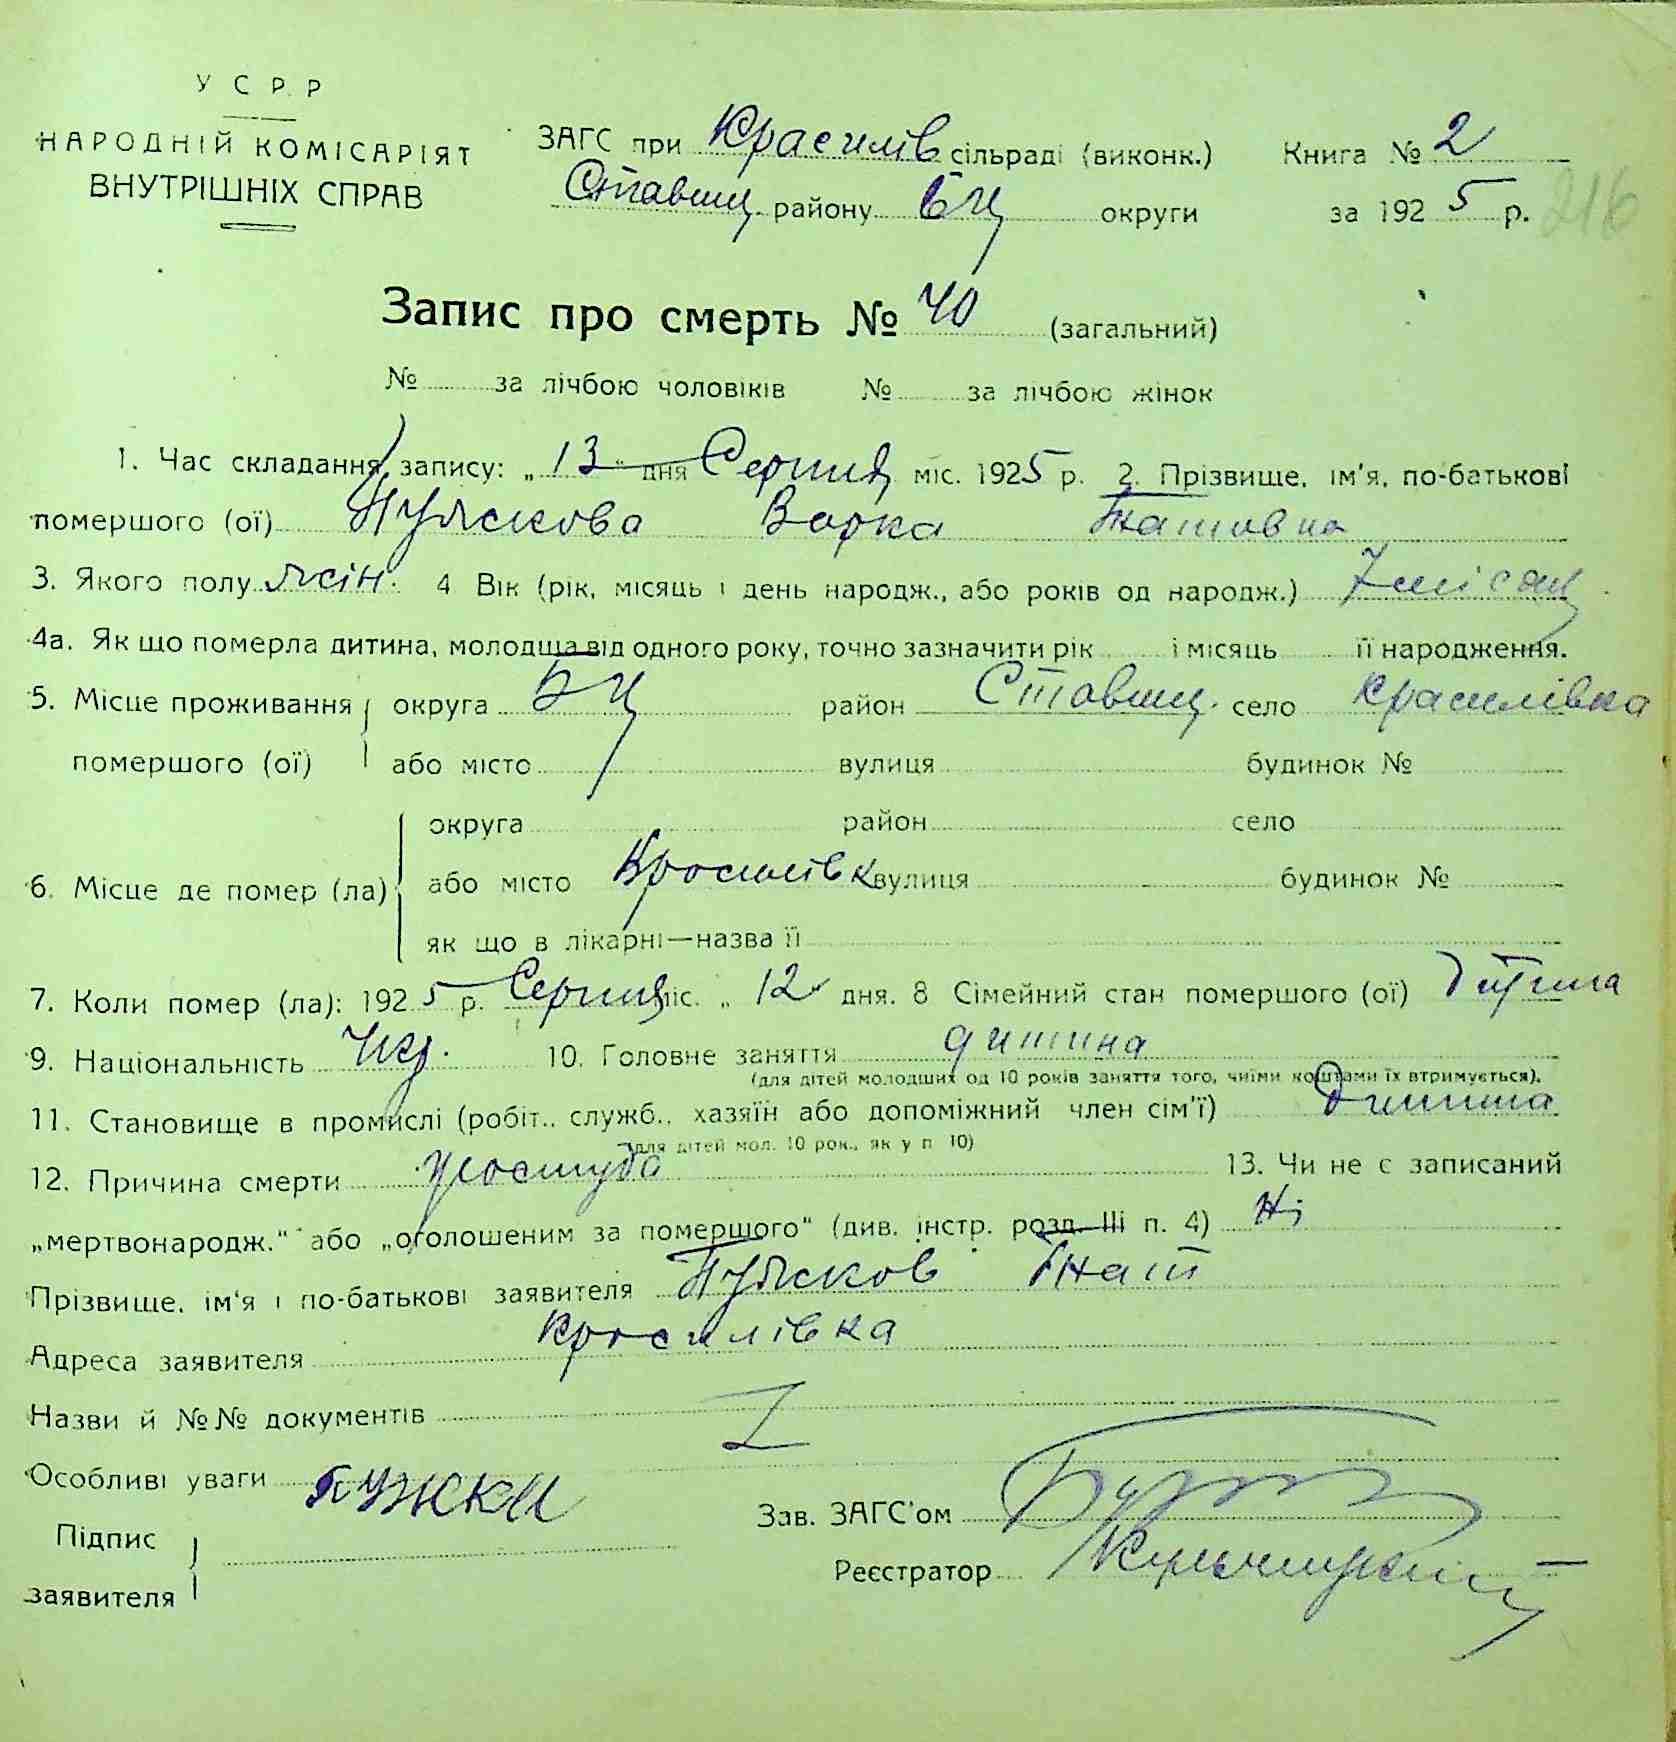 У С Р Р
НАРОДНІЙ КОМІСАРІЯТ
ВНУТРІШНІХ СПРАВ
ЗАГС при Красилів сільраді (виконк.) Книга № 2
Ставищ. району БЦ округи за 1925 р. 216
Запис про смерть № 40 (загальний)
№ за лічбою чоловіків № за лічбою жінок
1. Час складання запису: „13“ дня Серпня міс. 1925 р. 2. Прізвище, ім'я, по-батькові
помершого (ої) Пужскова Варка Гнатовна
3. Якого полу жін. 4 Вік (рік, місяць і день народж., або років од народж.) 7 місяц
4а. Як що померла дитина, молодша від одного року, точно зазначити рік і місяць її народження.
5. Місце проживання округа БЦ район Ставищ. село Красилівка
помершого (ої) або місто вулиця будинок №
округа район село
6. Місце де помер (ла) або місто Красилівк вулиця будинок №
як що в лікарні—назва її
7. Коли помер (ла): 1925 р. Серпня міс. „ 12 дня. 8 Сімейний стан помершого (ої) дитина
9. Національність Укр. 10. Головне заняття дитина
(для дітей молодших од 10 років заняття того, чиїми коштами їх втримується).
11. Становище в промислі (робіт., служб., хазяїн або допоміжний член сім'ї) Дитина
(для дітей мол. 10 рок., як у п 10)
12. Причина смерти простуда 13. Чи не є записаний
„мертвонародж.“ або „оголошеним за помершого“ (див. інстр. розд. III п. 4) Ні
Прізвище, ім'я і по-батькові заявителя Пужсков Гнат
Адреса заявителя Красилівка
Назви й №№ документів
Особливі уваги
Підпис заявителя Пужкн
Зав. ЗАГС'ом
Реєстратор